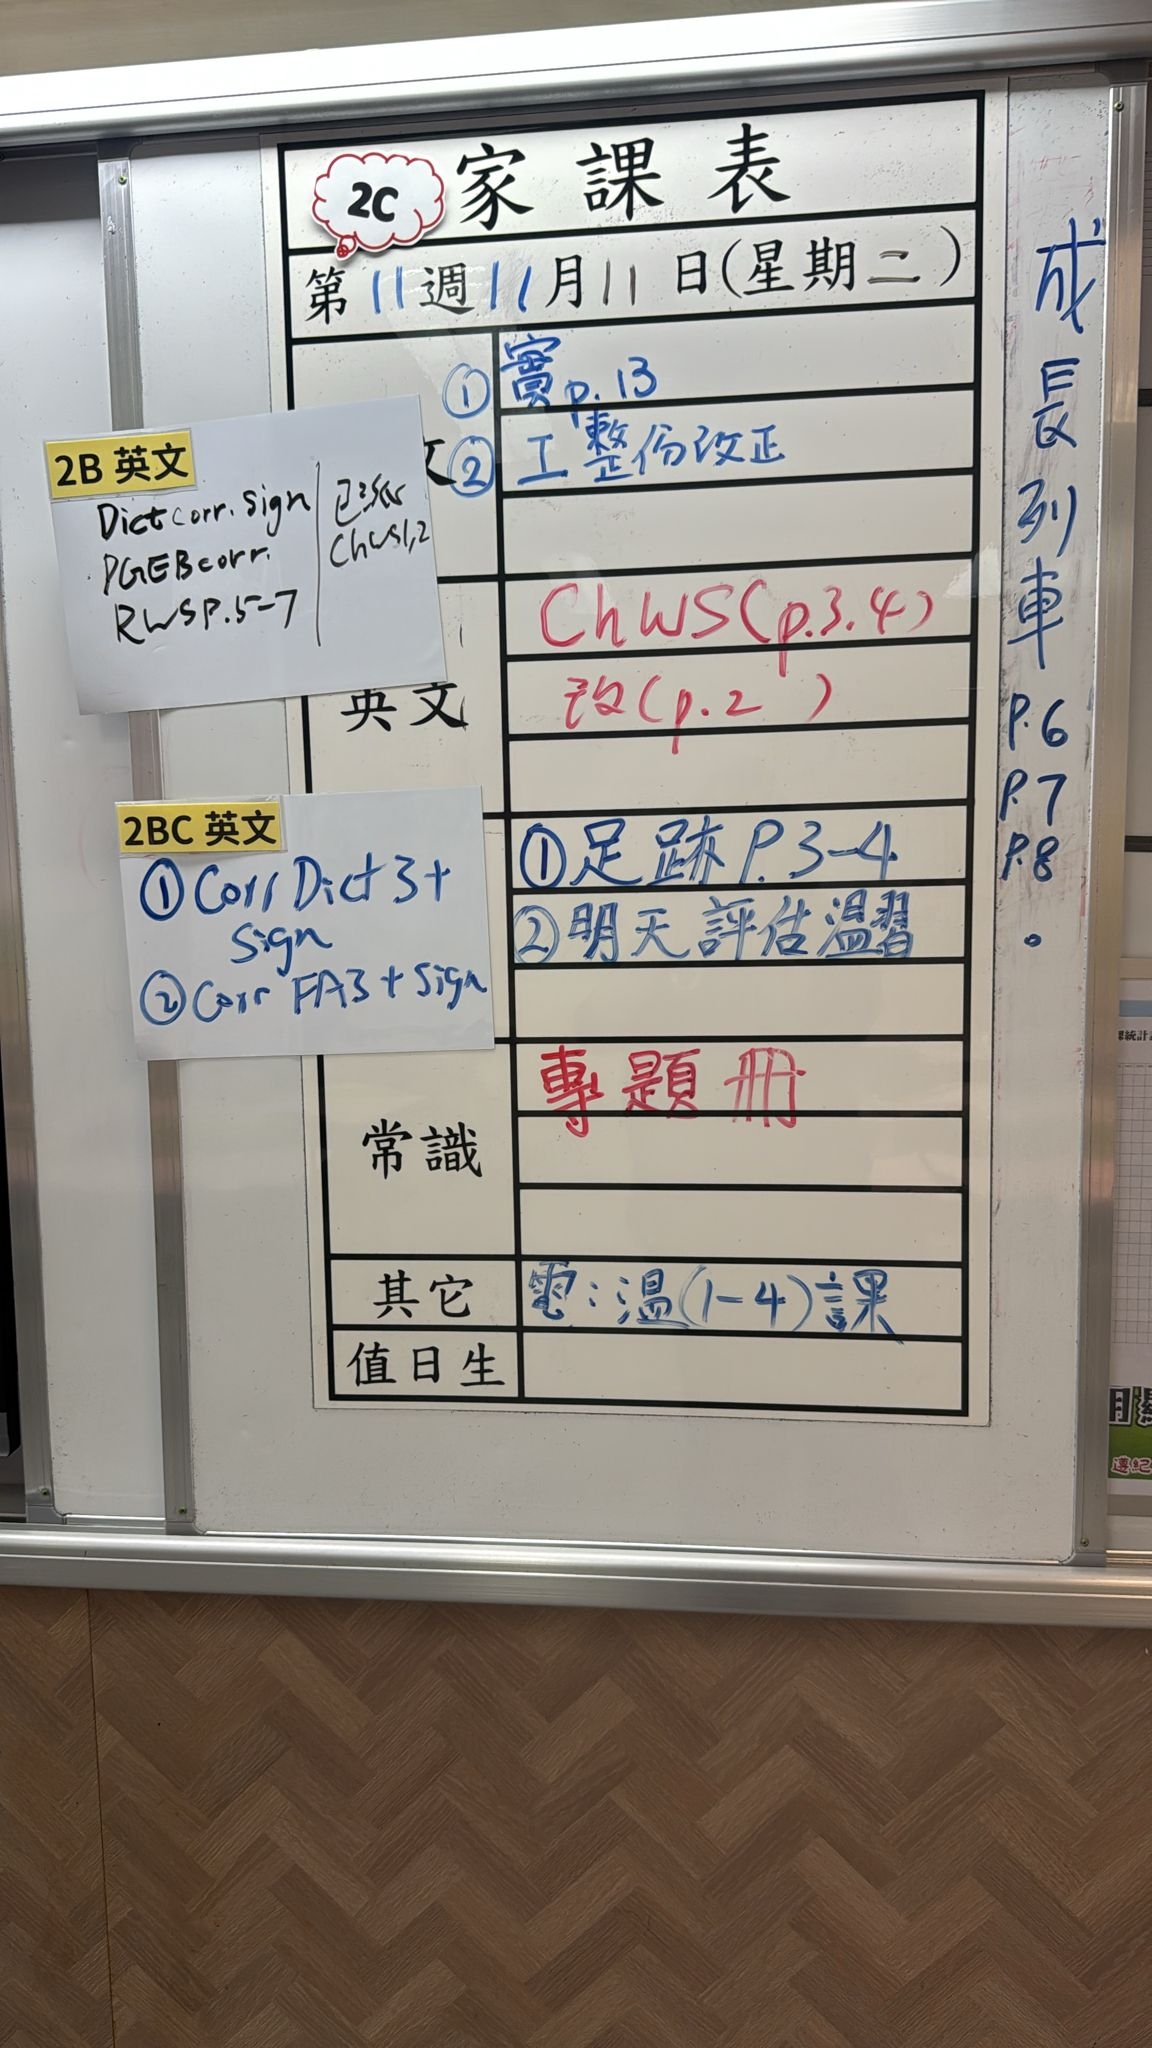 2C 家課表
第11週11月11日(星期二)
① 實p.13
文 ② 工整份改正
2B 英文
Dict corr. sign
PGEB corr.
RWS P.5-7
ChWS1,2
英文
ChWS(p.3.4)
改(p.2 )
2BC 英文
① Corr Dict 3 + sign
② Corr FA3 + sign
①足跡 P.3-4
②明天評估溫習
常識
專題冊
其它
電:溫(1-4)課
值日生
成長列車
P.6
P.7
P.8
。
課統計
遵紀